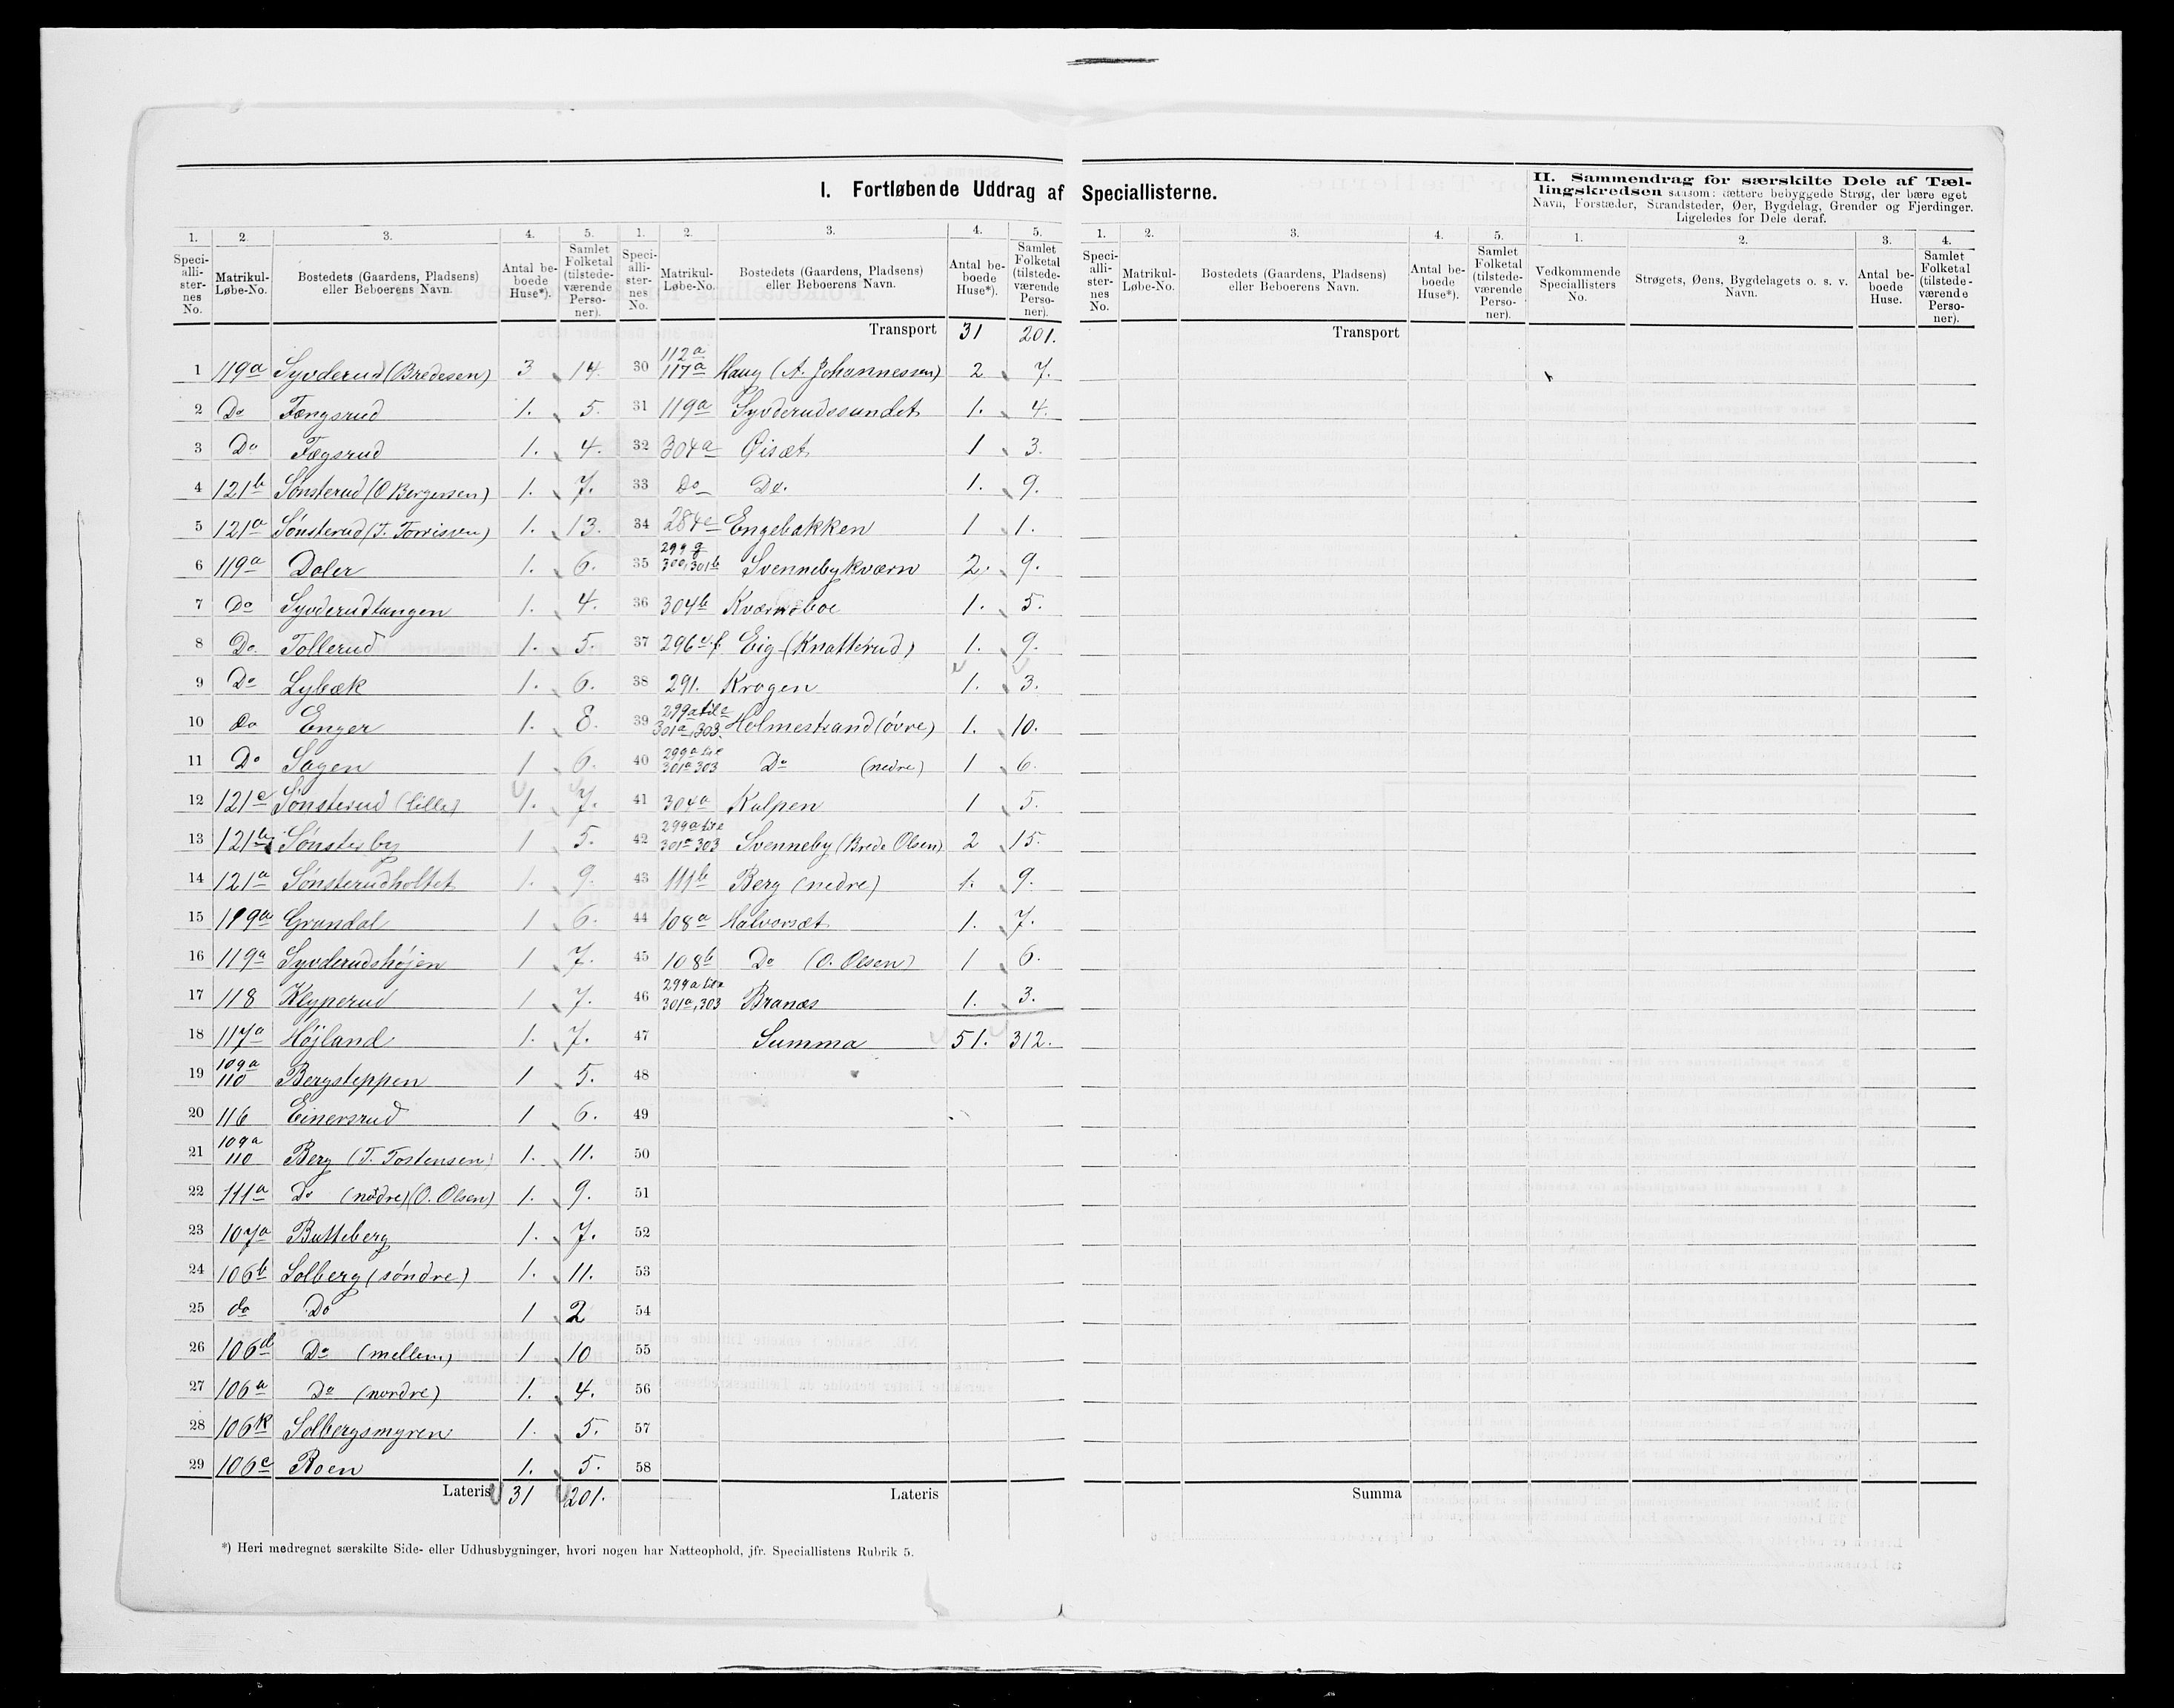 I. Fortløbende Uddrag af Speciallisterne.
II. Sammendrag for særskilte Dele af Tæl-
lingskredsen saasom: tættere bebyggede Strøg, der bære eget
Navn, Forstæder, Strandsteder, Øer, Bygdelag, Grender og Fjerdinger.
Ligeledes for Dele deraf.
1. 2. 3. 4. 5. 1. 2. 3. 4. 5. 1. 2. 3. 4. 5. 1. 2. 3. 4.
Speci-alli-ster-nes No. Matrikul-Løbe-No. Bostedets (Gaardens, Pladsens) eller Beboerens Navn. Antal be-boede Huse*). Samlet Folketal (tilstede-værende Perso-ner).
Speci-alli-ster-nes No. Matrikul-Løbe-No. Bostedets (Gaardens, Pladsens) eller Beboerens Navn. Antal be-boede Huse*). Samlet Folketal (tilstede-værende Perso-ner).
Speci-alli-ster-nes No. Matrikul-Løbe-No. Bostedets (Gaardens, Pladsens) eller Beboerens Navn. Antal be-boede Huse*). Samlet Folketal (tilstede-værende Perso-ner).
Vedkommende Speciallisters No. Strøgets, Øens, Bygdelagets o. s. v. Navn. Antal be-boede Huse. Samlet Folketal (tilstede-værende Perso-ner).
1 119a Syvderud (Bredesen) 3 14.
2 Do Fængsrud 1. 5.
3 Do Fægsrud 1. 4.
4 121b Sønsterud (O Børgersen) 1. 7.
5 121a Sønsterud (T. Torrissen) 1. 13.
6 119a Daler 1. 6.
7 Do Syvderudtangen 1. 4.
8 Do. Tollerud 1. 5.
9 Do Lybæk 1. 6.
10 do Enger 1. 8.
11 Do Sagen 1 6.
12 121c Sønsterud (lille) 1. 7.
13 121b Sønsterby 1 5.
14 121a Sønsterudholtet 1. 9.
15 119a Grandal 1 6.
16 119a Syvderudshøjen 1 7.
17 118 Klyperud 1 7.
18 117a Højland 1. 7.
19 109a 110 Bergsteppen 1 5.
20 116 Einersrud 1 6.
21 109a 110 Berg (T. Tostensen) 1. 11.
22 111a Do (nødre) (O. Olsen) 1. 9.
23 107a Butteberg 1. 7.
24 106b Solberg (søndre) 1. 11.
25 do Do 1 2
26 106d Do (mellem) 1 10
27 106a Do (nordre) 1. 4.
28 106k Solbergsmyren 1. 5.
29 106c Roen 1. 5.
Lateris 31 201.
Transport 31 201.
30 112a 117a Haug (A. Johannessen) 2 7.
31 119a Syvderudssundet 1. 4.
32 304a Øisæt 1 3.
33 Do Do. 1. 9.
34 284c Engebakken 1 1.
35 299g 300, 301b Svennebykværn 2. 9.
36 304b Kværnoboe 1. 5.
37 296 Eig (Knatterud) 1. 9.
38 291. Krogen 1. 3.
39 299a til e 301a, 303. Holmestrand (øvre) 1. 10.
40 299a til e 301a 303 Do (nedre) 1 6.
41 304a Kalpen 1 5.
42 299a til e 301a 303 Svenneby (Brede Olsen) 2 15.
43 111b Berg (nedre) 1. 9.
44 108a Halvorsæt 1. 7.
45 108b Do (O. Olsen) 1 6.
46 299a til e 301a, 303 Branæs 1. 3.
47 Summa 51. 312.
48
49
50
51
52
53
54
55
56
57
58
Lateris
Transport
Summa
*) Heri medregnet særskilte Side- eller Udhusbygninger, hvori nogen har Natteophold, jfr. Speciallistens Rubrik 5.